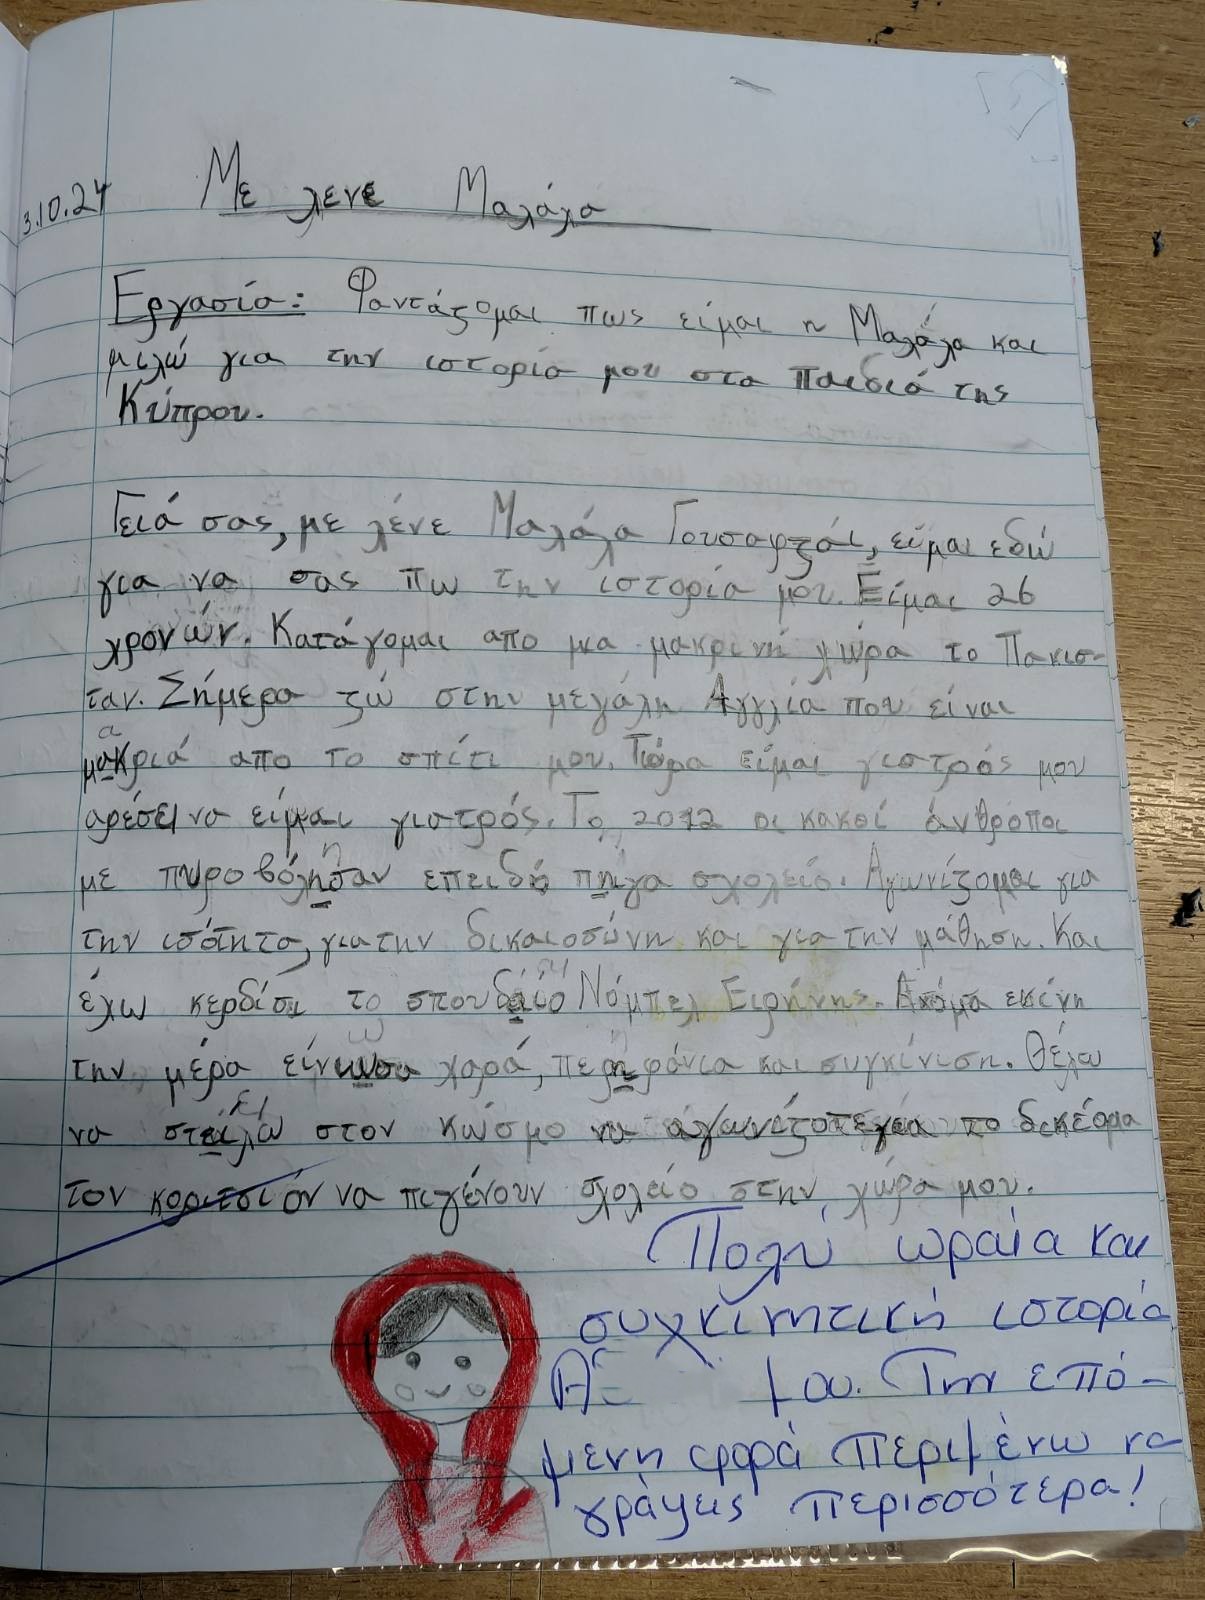 3.10.24
Με λενε Μαλάλα
Εργασία: Φαντάζομαι πως είμαι η Μαλάλα και
μιλώ για την ιστορία μου στα παιδιά της
Κύπρου.
Γειά σας, με λένε Μαλάλα Γουσαφζάι, είμαι εδώ
για να σας πω την ιστορία μου. Είμαι 26
χρονών. Κατάγομαι απο μια μακρινή χώρα το Πακισ-
ταν. Σήμερα ζώ στην μεγάλη Αγγλία που είναι
μακριά απο το σπίτι μου. Τώρα είμαι γιατρός μου
αρέσει να είμαι γιατρός. Το 2012 οι κακοί άνθροποι
με πυροβόλησαν επειδή πήγα σχολείο. Αγωνίζομαι για
την ισότητα, για την δικαιοσύνη και για την μάθηση. Και
έχω κερδίσι το σπουδαίο Νόμπελ Ειρήνης. Ακόμα εκίνη
την μέρα χαρά, περηφάνια και συγκίνιση. Θέλω
να στείλω στον κώσμο να το δικέομα
τον κοριτσιόν να πιγένουν σχολείο στην χώρα μου.
Πολύ ωραία και
συγκινητική ιστορία
μου. Την επό-
μενη φορά περιμένω να
γράψεις περισσότερα!